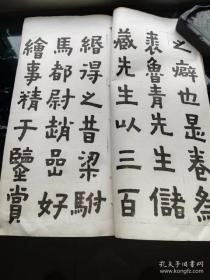 之癖也是卷為
裘魯青先生儲
藏先生以三百
緡得之昔梁駙
馬都尉趙喦好
繪事精于鑒賞
孔夫子旧书网